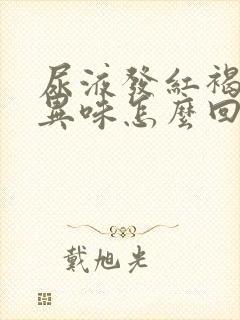 尿液發紅褐
異味怎麼回
戴旭光